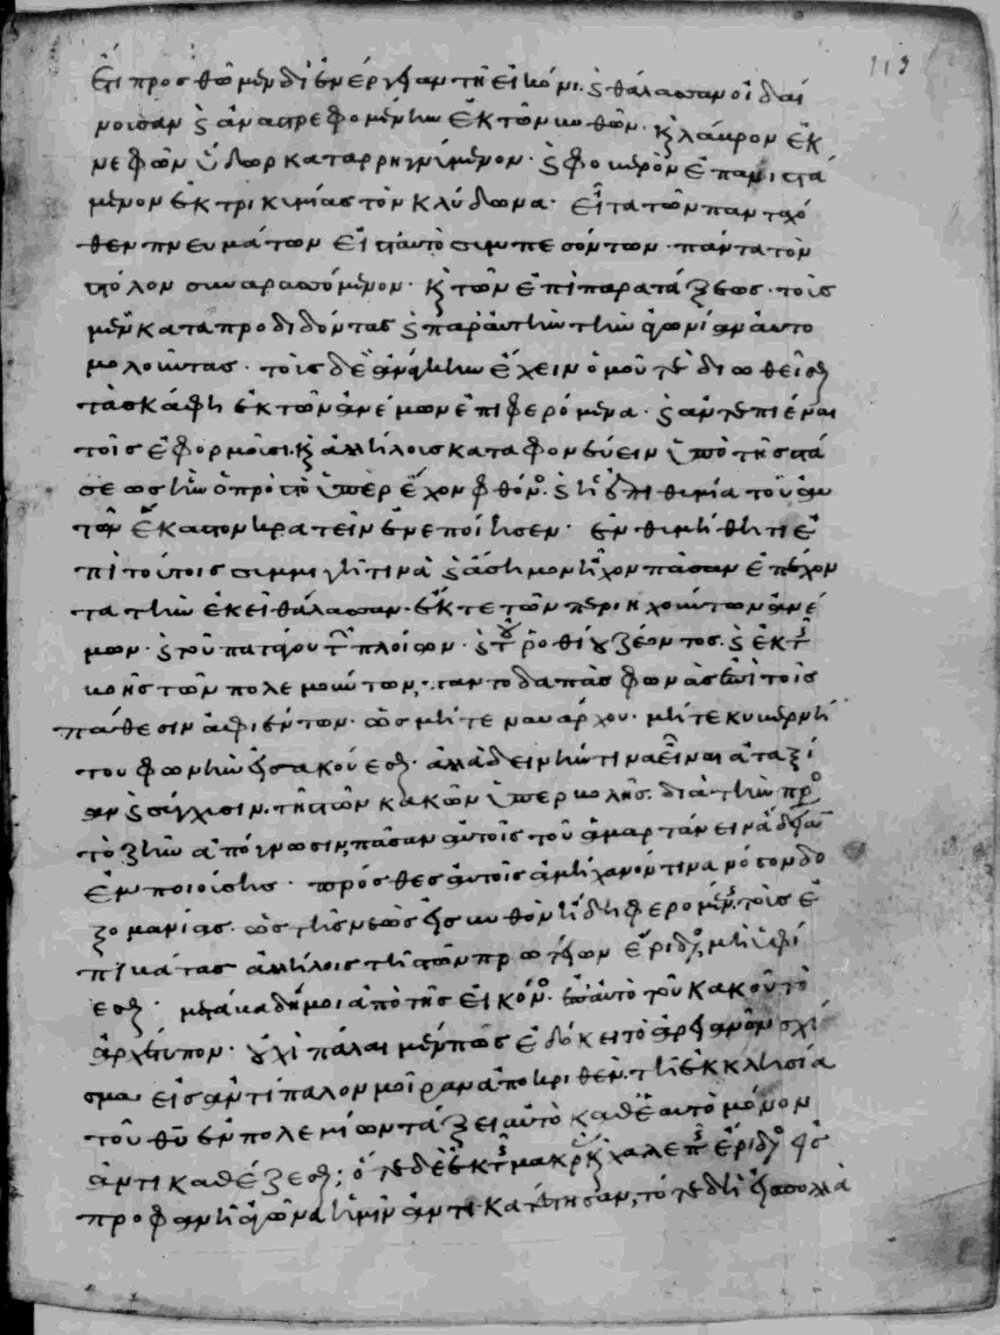 ἔτι προσθῶμεν δι ἐνέργειαν τῆ εἰκόνι. καὶ θάλασσαν οἰδαί
νουσαν καὶ ἀναστρεφομένην ἐκ τῶν βυθῶν. καὶ λάβρον ἐκ
νεφῶν ὕδωρ καταρρηγνύμενον. καὶ φοβερὸν ἐπανιστά
μενον ἐκ τρικυμίας τὸν κλύδωνα. εἶτα τῶν πανταχό
θεν πνευμάτων εἰς ταυτὸ συμπεσόντων. πάντα τὸν
στόλον συναρασσόμενον. καὶ τῶν ἐπὶ παρατάξεως. τοὺς
μὲν καταπροδιδόντας καὶ παρ αὐτὴν τὴν ἀγωνίαν αὐτο
μολοῦντας. τοὺς δὲ ἀνάγκην ἔχειν ὁμοῦ τε διωθεῖσθαι
τὰ σκάφη ἐκ τῶν ἀνέμων ἐπιφερόμενα. καὶ ἀντεπιέναι
τοῖς ἐφορμοῦσι. καὶ ἀλλήλους καταφονεύειν ὑπὸ τῆς στά
σεως ἣν ὁ πρὸς τὸ ὑπερέχον φθόνος. καὶ ἡ ἐπιθυμία τοῦ αὐ
τὸν ἕκαστον κρατεῖν ἐνεποίησεν. ἐνθυμήθητι ἐ
πὶ τούτοις συμμιγῆ τινὰ καὶ ἄσημον ἦχον πᾶσαν ἐπέχον
τα τὴν ἐκεῖ θάλασσαν. ἔκ τε τῶν περιηχούντων ἀνέ
μων. καὶ τοῦ πατάγου τῶν πλοίων. καὶ τοῦ ῥοθίου ζέοντος. καὶ ἐκ τῆς
βοῆς τῶν πολεμούντων. παντοδαπὰς φωνὰς ἐπὶ τοῖς
πάθεσιν ἀφιέντων. ὡς μήτε ναυάρχου. μήτε κυβερνή
του φωνὴν εἰσακούεσθαι. ἀλλὰ δεινήν τινα εἶναι ἀταξί
αν καὶ σύγχυσιν. τῆς τῶν κακῶν ὑπερβολῆς. διὰ τὴν πρὸς
τὸ ζῆν ἀπόγνωσιν, πᾶσαν αὐτοῖς τοῦ ἁμαρτάνειν ἄδειαν
ἐμποιούσης. πρόσθες αὐτοῖς ἀμήχανόν τινα νόσον δο
ξομανίας. ὡς τῆς νεὼς εἰς βυθὸν ἤδη φερομένης. τοὺς ἐ
πιβάτας ἀλλήλοις τῆς τῶν πρωτείων ἔριδος, μὴ ὑφί
εσθαι. μετάβα δή μοι ἀπὸ τῆς εἰκόνος. ἐπ αὐτὸ τοῦ κακοῦ τὸ
ἀρχέτυπον. οὐχὶ πάλαι μέν πως ἐδόκει τὸ ἀρειανὸν σχί
σμα εἰς ἀντίπαλον μοῖραν ἀποκριθὲν. τῆ ἐκκλησία
τοῦ θυ ἐν πολεμίων τάξει αὐτὸ καθ ἑαυτὸ μόνον
ἀντικαθέζεσθαι; ὅτε δὲ ἐκ τῆς μακρᾶς καὶ χαλεπῆς ἔριδος εἰς
προφανῆ ἀγῶνα ἡμῖν ἀντικατέστησαν, τότε δὴ εἰς πολλὰ